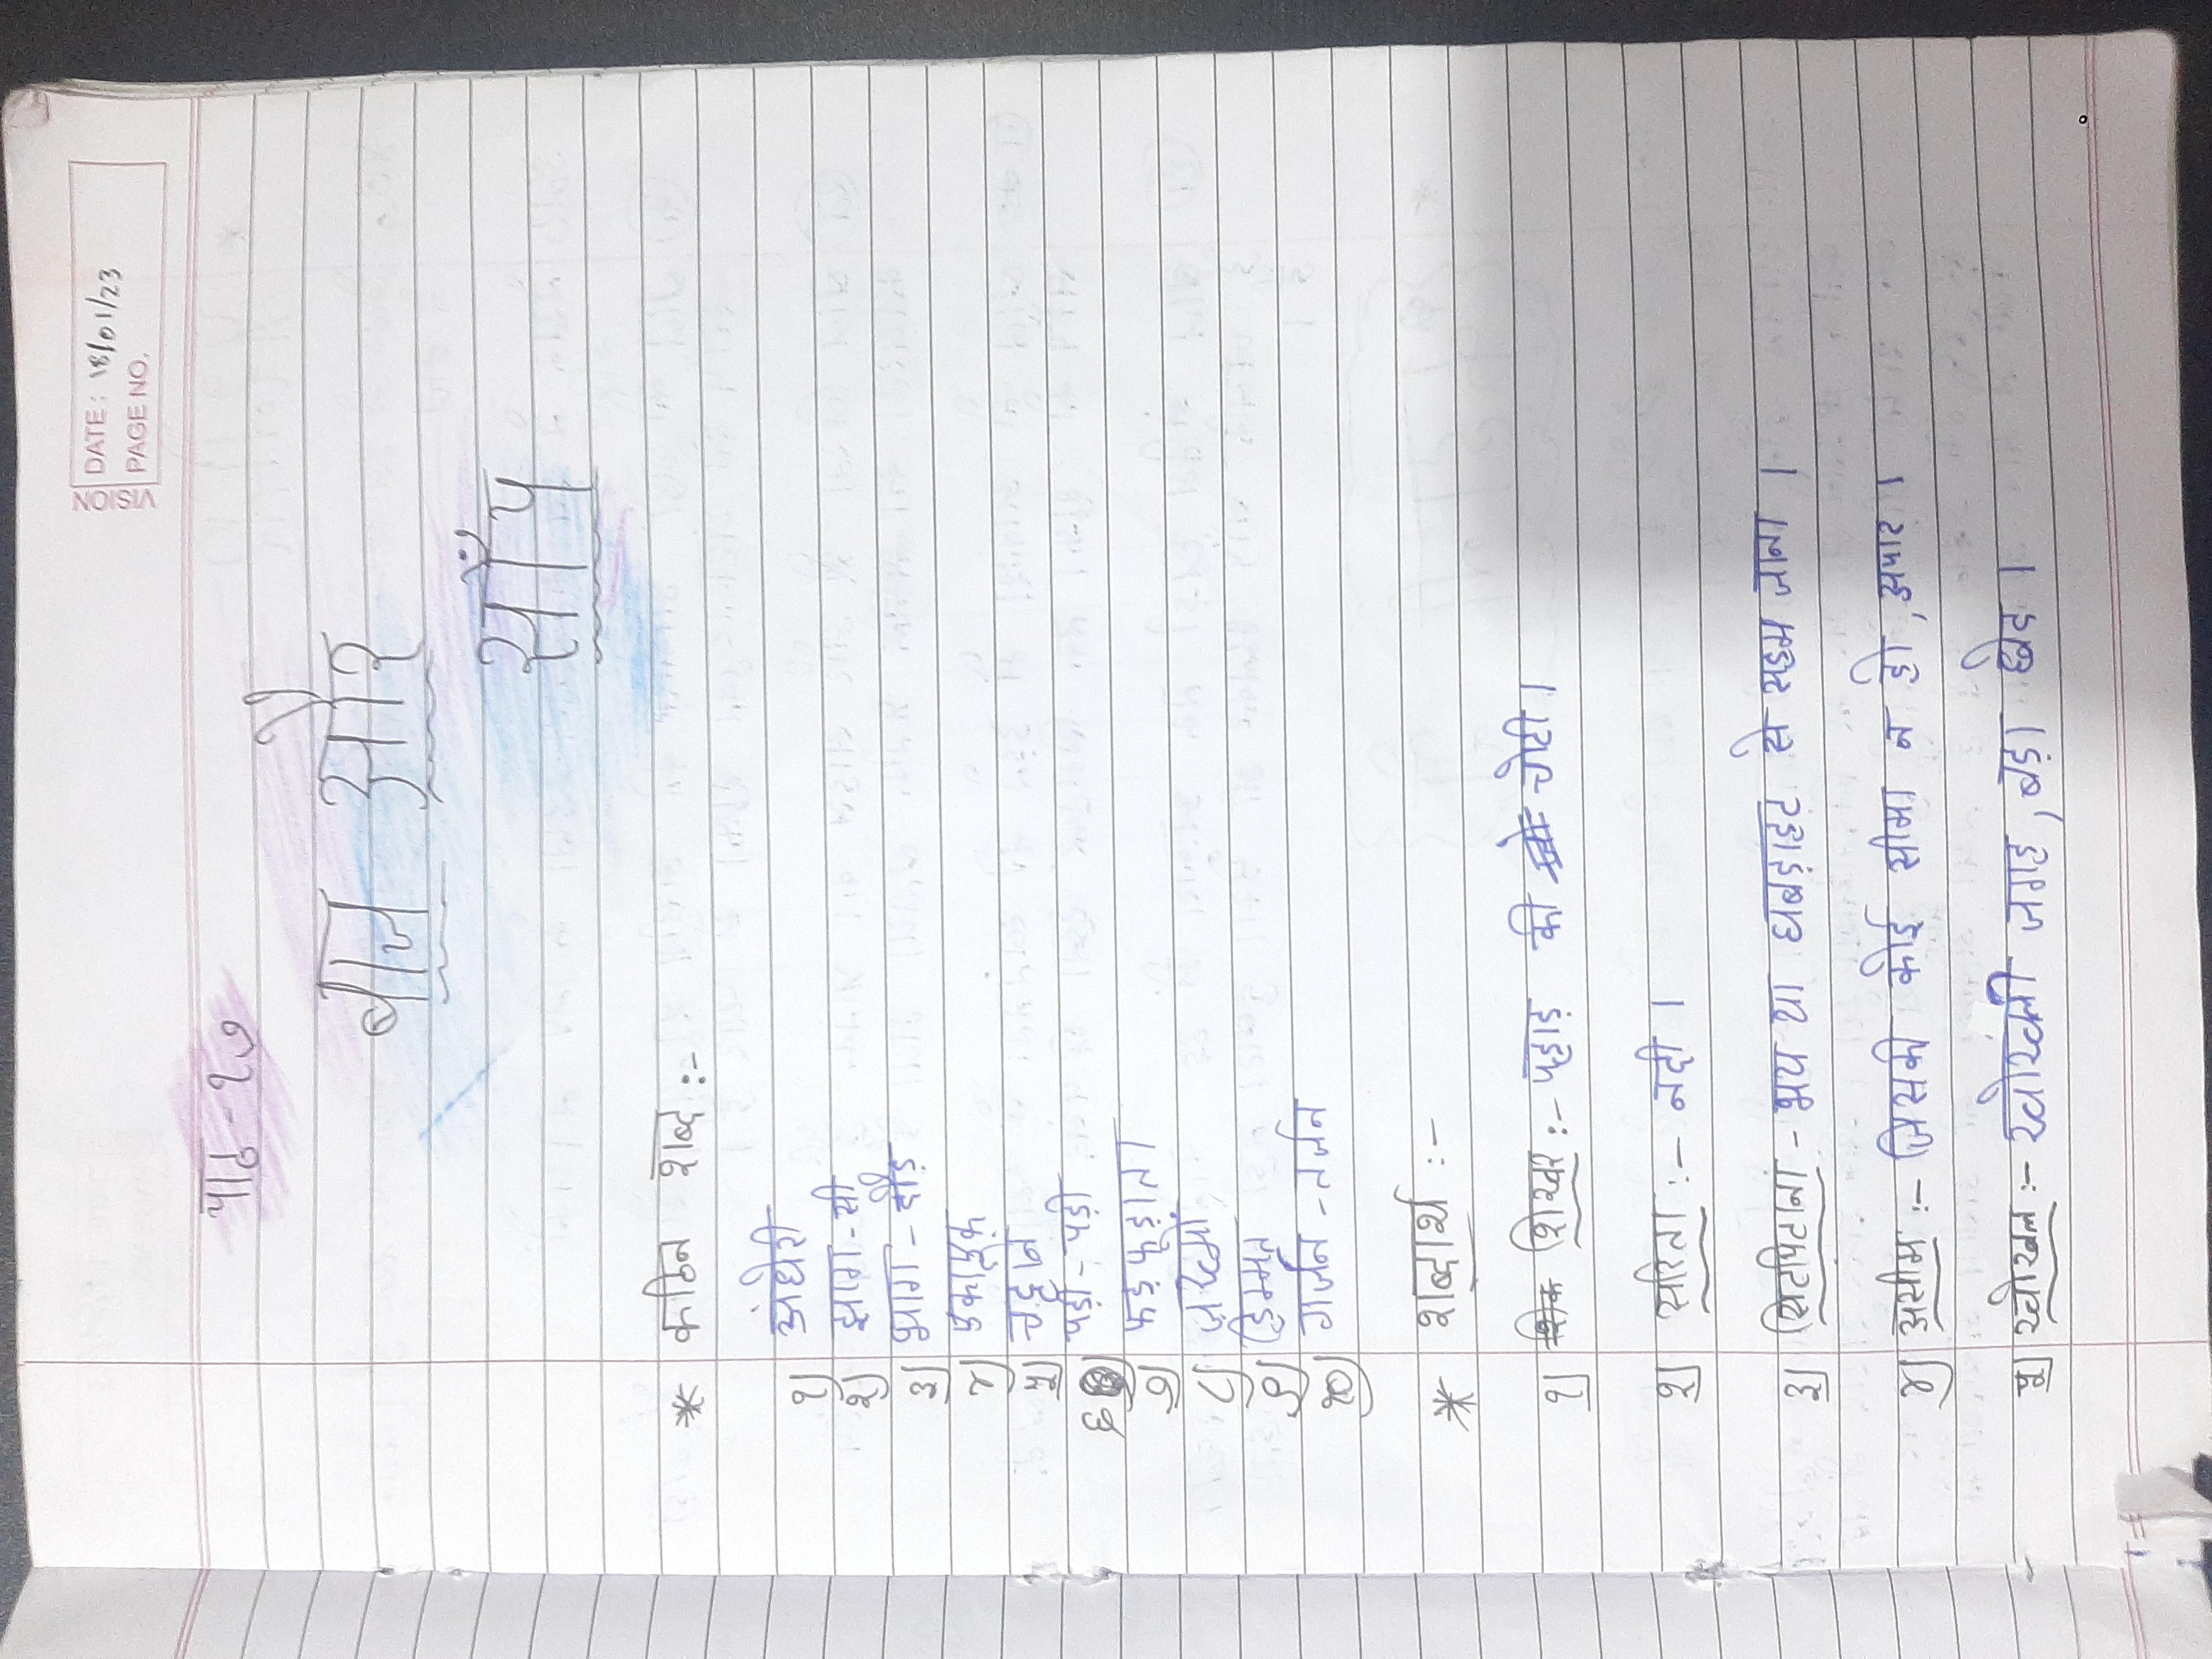 VISION
DATE: 18/01/23
PAGE NO.
पाठ - १७
बाज और
साँप
* कठिन शब्द :-
१) अंधेरी
२) झाग - सी
३) भाग - दौड़
४) एकाएक
५) चट्टानें
६) पड़ी - पड़ी
७) फड़फड़ाता
८) ज़ख्मों
९) हिम्मत
१०) गर्जन - तर्जन
* शब्दार्थ :-
१) शिखर :- पहाड़ की चोटी ।
२) सरिता :- नदी ।
३) सिटपिटाना - भय या घबड़ाहट से सहम जाना ।
४) असीम :- जिसकी कोई सीमा न हो, अपार ।
५) खोखल :- खोखली जगह, बड़ा छेद ।